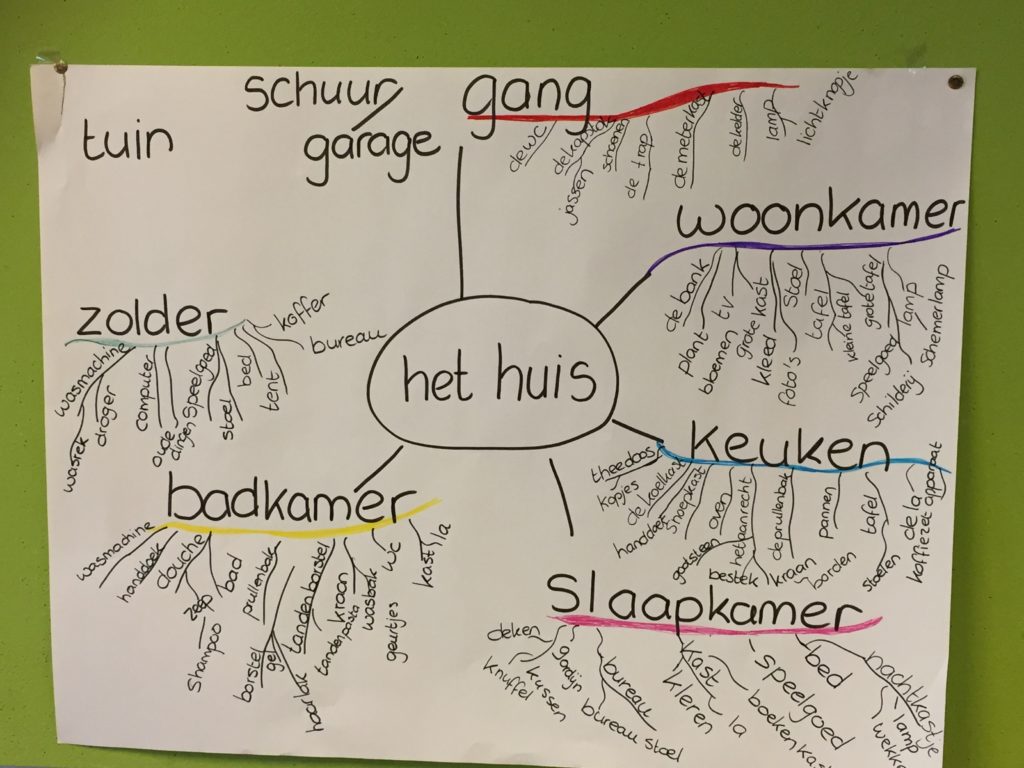 schuur/
garage
tuin
gang
de wc
de kapstok
jassen
schoenen
de trap
de meterkast
de kelder
lamp
lichtknopje
woonkamer
de bank
plant
tv
bloemen
grote kast
kleed
stoel
foto's
tafel
kleine tafel
grote tafel
speelgoed
lamp
schilderij
schemerlamp
het huis
zolder
wasmachine
wasrek
droger
computer
oude
dingen
speelgoed
stoel
bed
tent
koffer
bureau
keuken
theedoos
kopjes
de koelkast
handdoek
snoepkast
gootsteen
oven
het aanrecht
bestek
de prullenbak
kraan
pannen
borden
tafel
stoelen
de la
koffiezet-apparaat
badkamer
wasmachine
handdoek
douche
zeep
shampoo
bad
prullenbak
borstel
gel
haarlak
tandenborstel
tandenpasta
kraan
wasbak
wc
geurtjes
kast
la
slaapkamer
deken
knuffel
kussen
gordijn
bureau
bureau stoel
kast
kleren
la
speelgoed
boekenkas
bed
nachtkastje
lamp
wekke